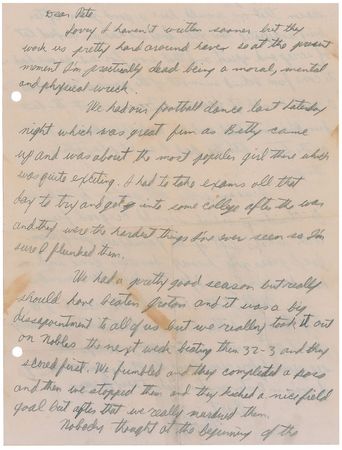 Dear Pete
Sorry I haven't written sooner but they
work us pretty hard around here so at the present
moment I'm practically dead being a moral, mental
and physical wreck.
We had our football dance last Saturday
night which was great fun as Betty came
up and was about the most popular girl there which
was quite exciting. I had to take exams all that
day to try and get into some college after the war
and they were the hardest things I've ever seen so I'm
sure I flunked them.
We had a pretty good season but really
should have beaten Groton and it was a big
disappointment to all of us but we really took it out
on Nobles the next week beating them 32-3 and they
scored first. We fumbled and they completed a pass
and then we stopped them and they kicked a nice field
goal but after that we really murdered them.
Nobody thought at the beginning of the